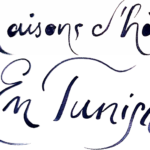 aisons d'hô
En Tunisi